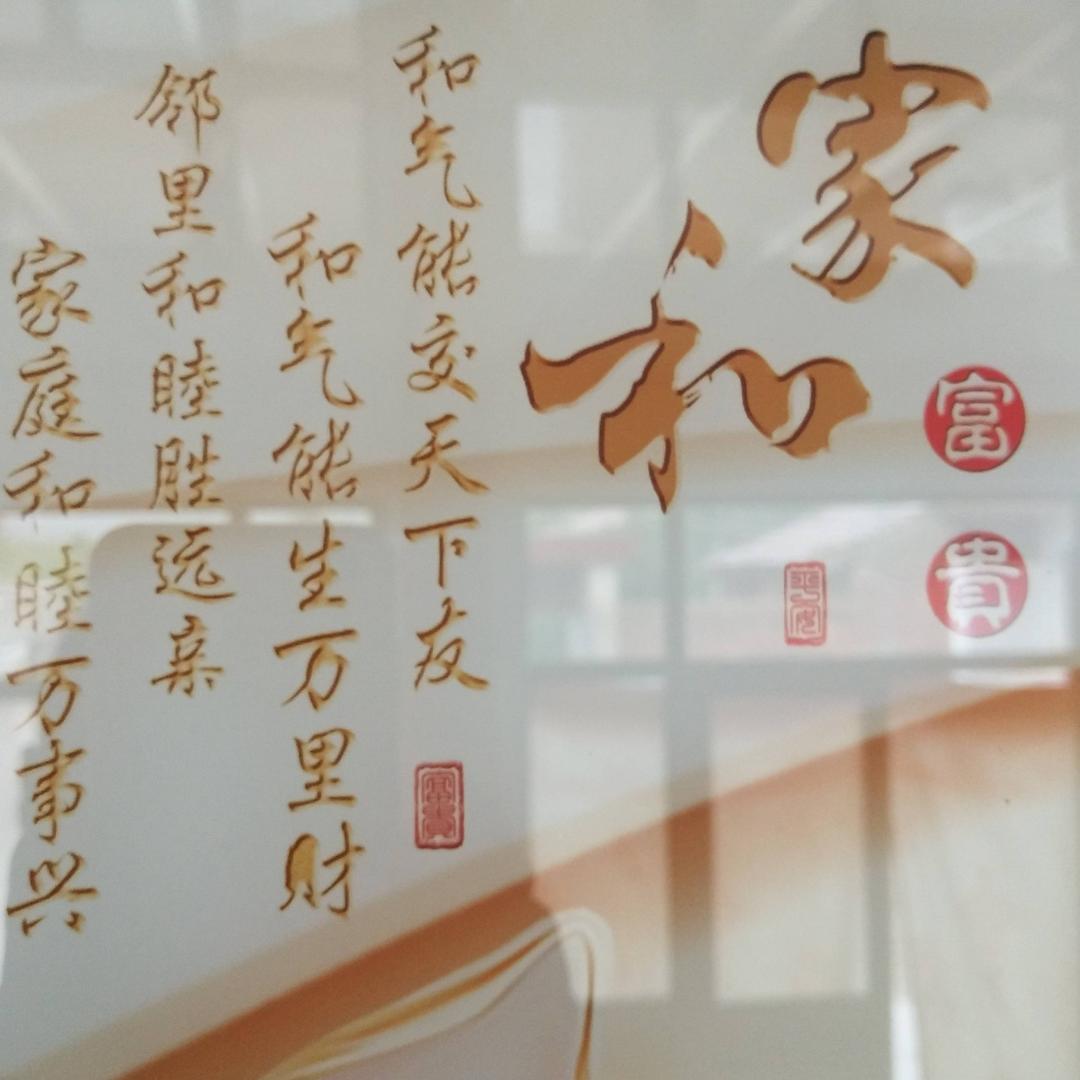 家和
富貴
和气能交天下友
富貴
和气能生万里财
邻里和睦胜远亲
家庭和睦万事兴